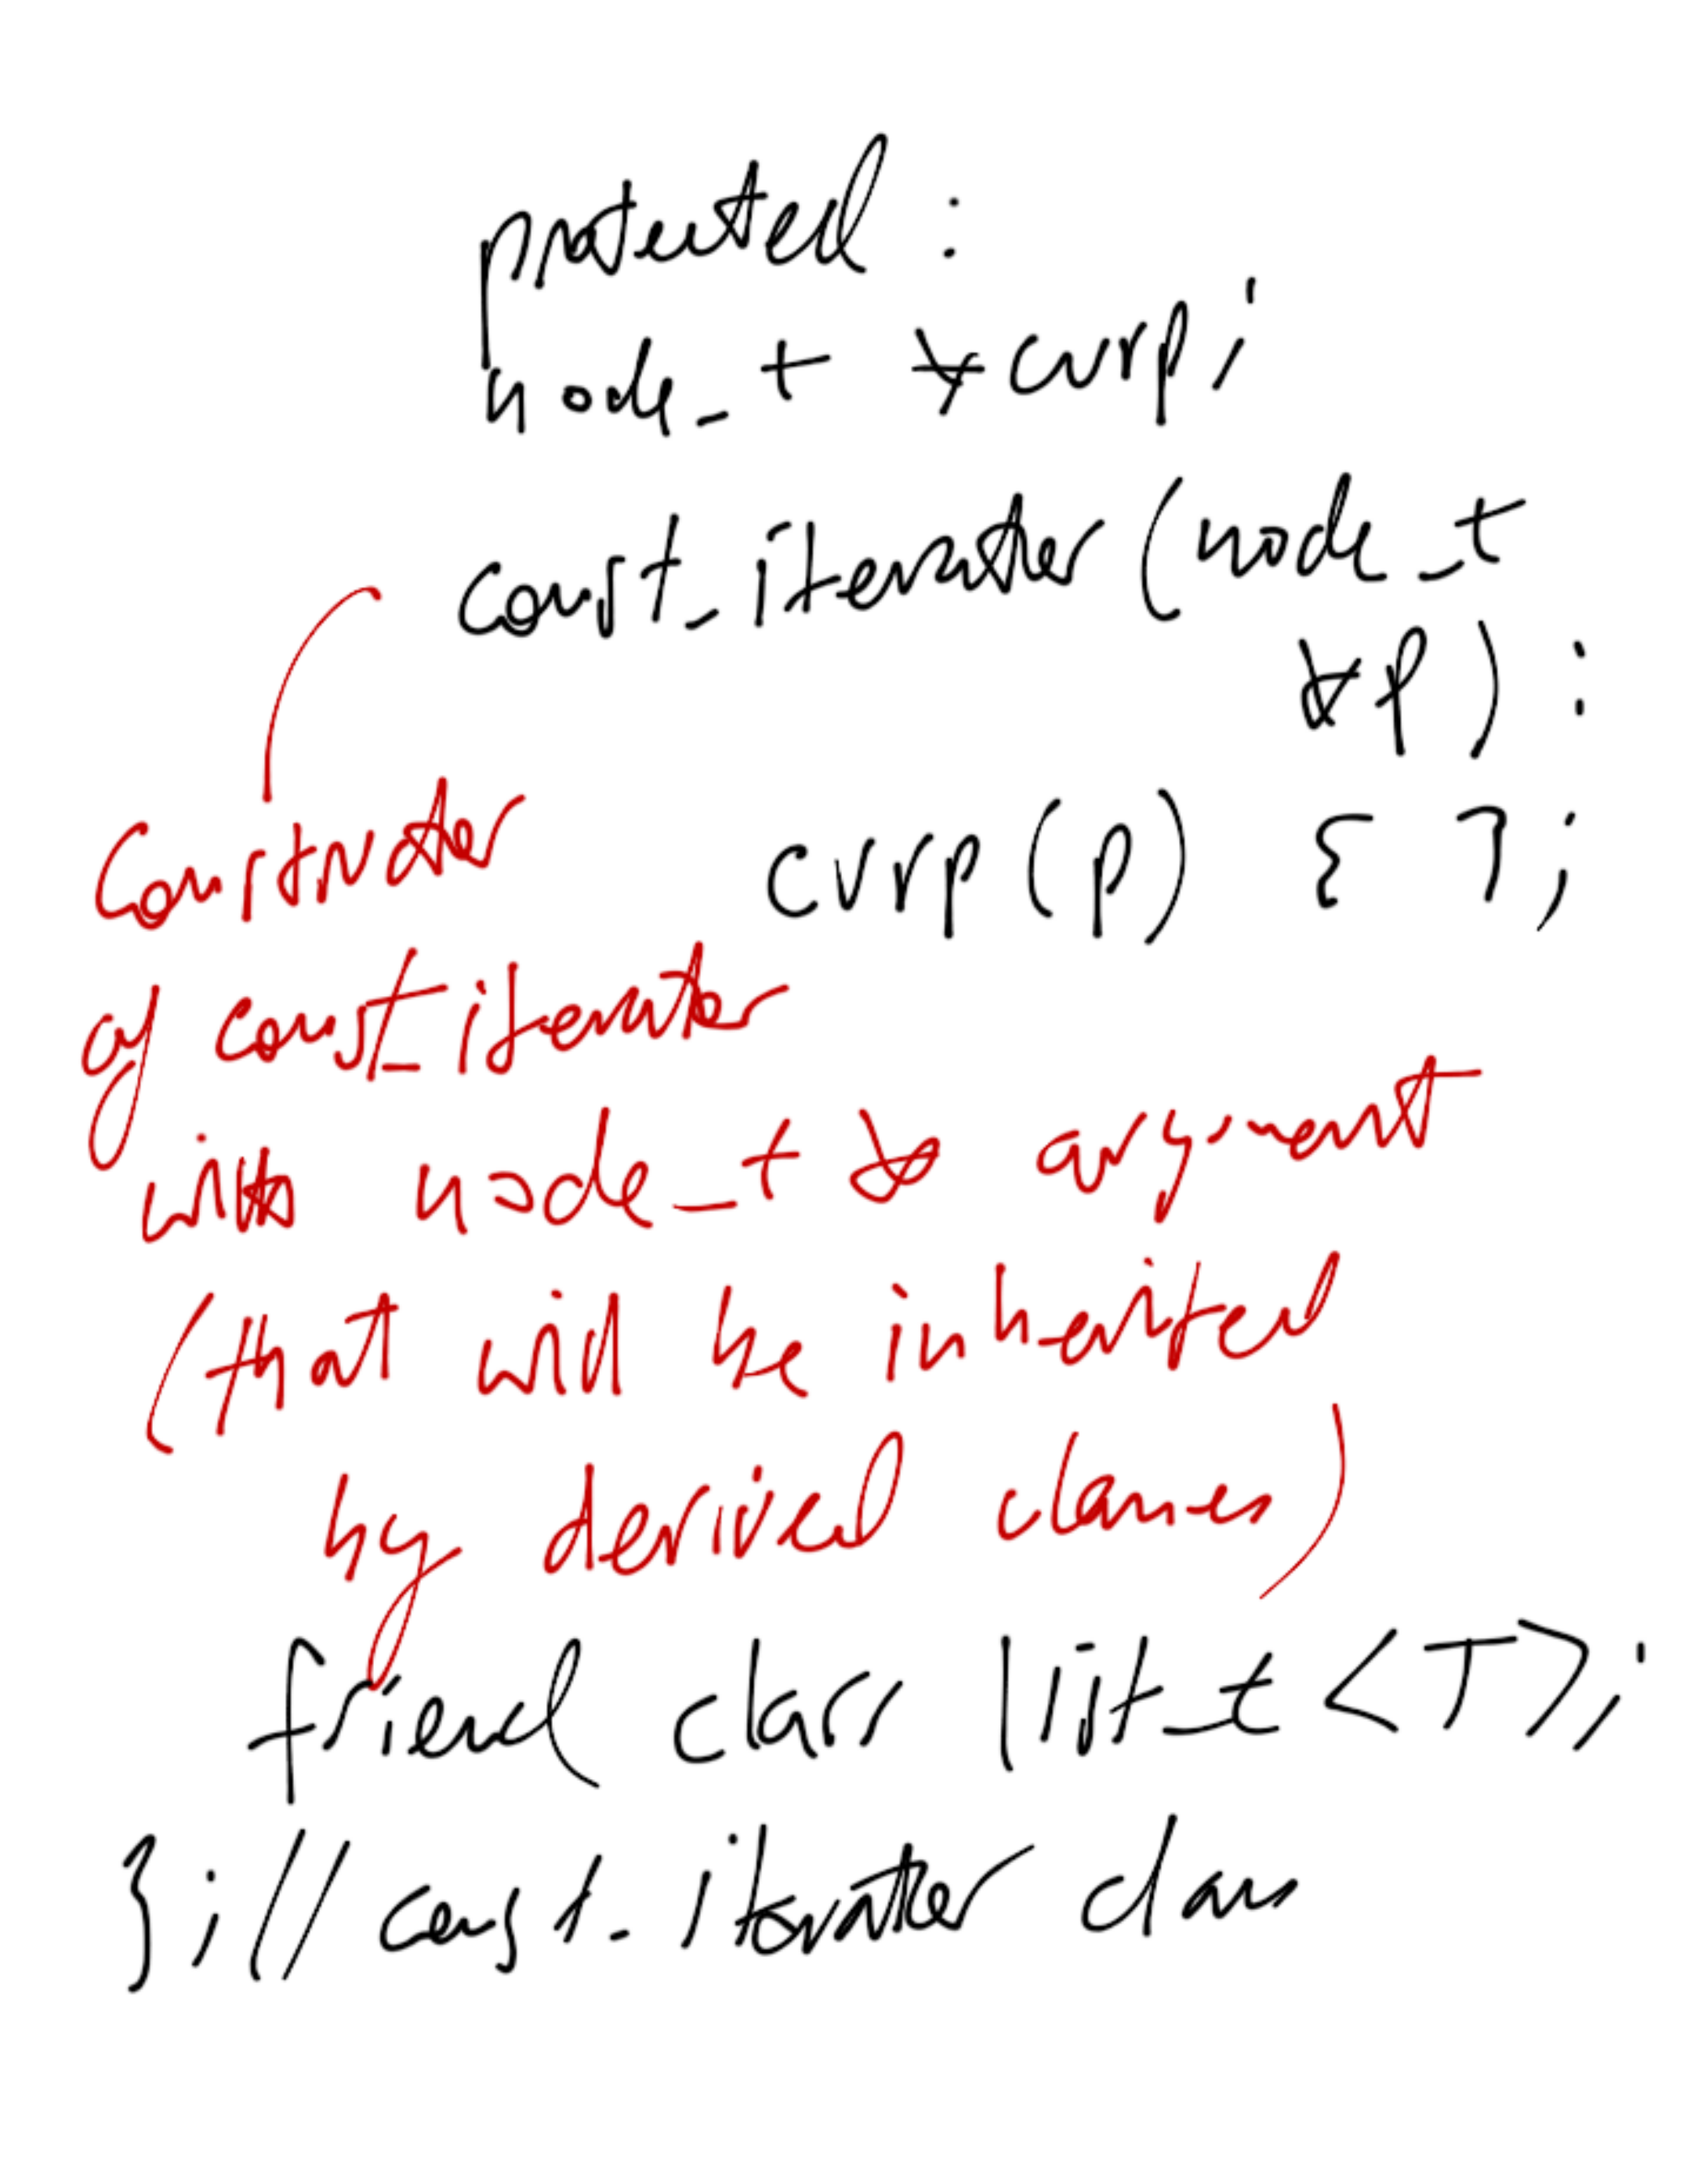 protected :
node_t *curp;
const_iterator (node_t
*p) :
curp(p) { };
Constructor
of const_iterator
with node_t * argument
(that will be inherited
by derived classes)
friend class list_t <T>;
};// const_iterator class